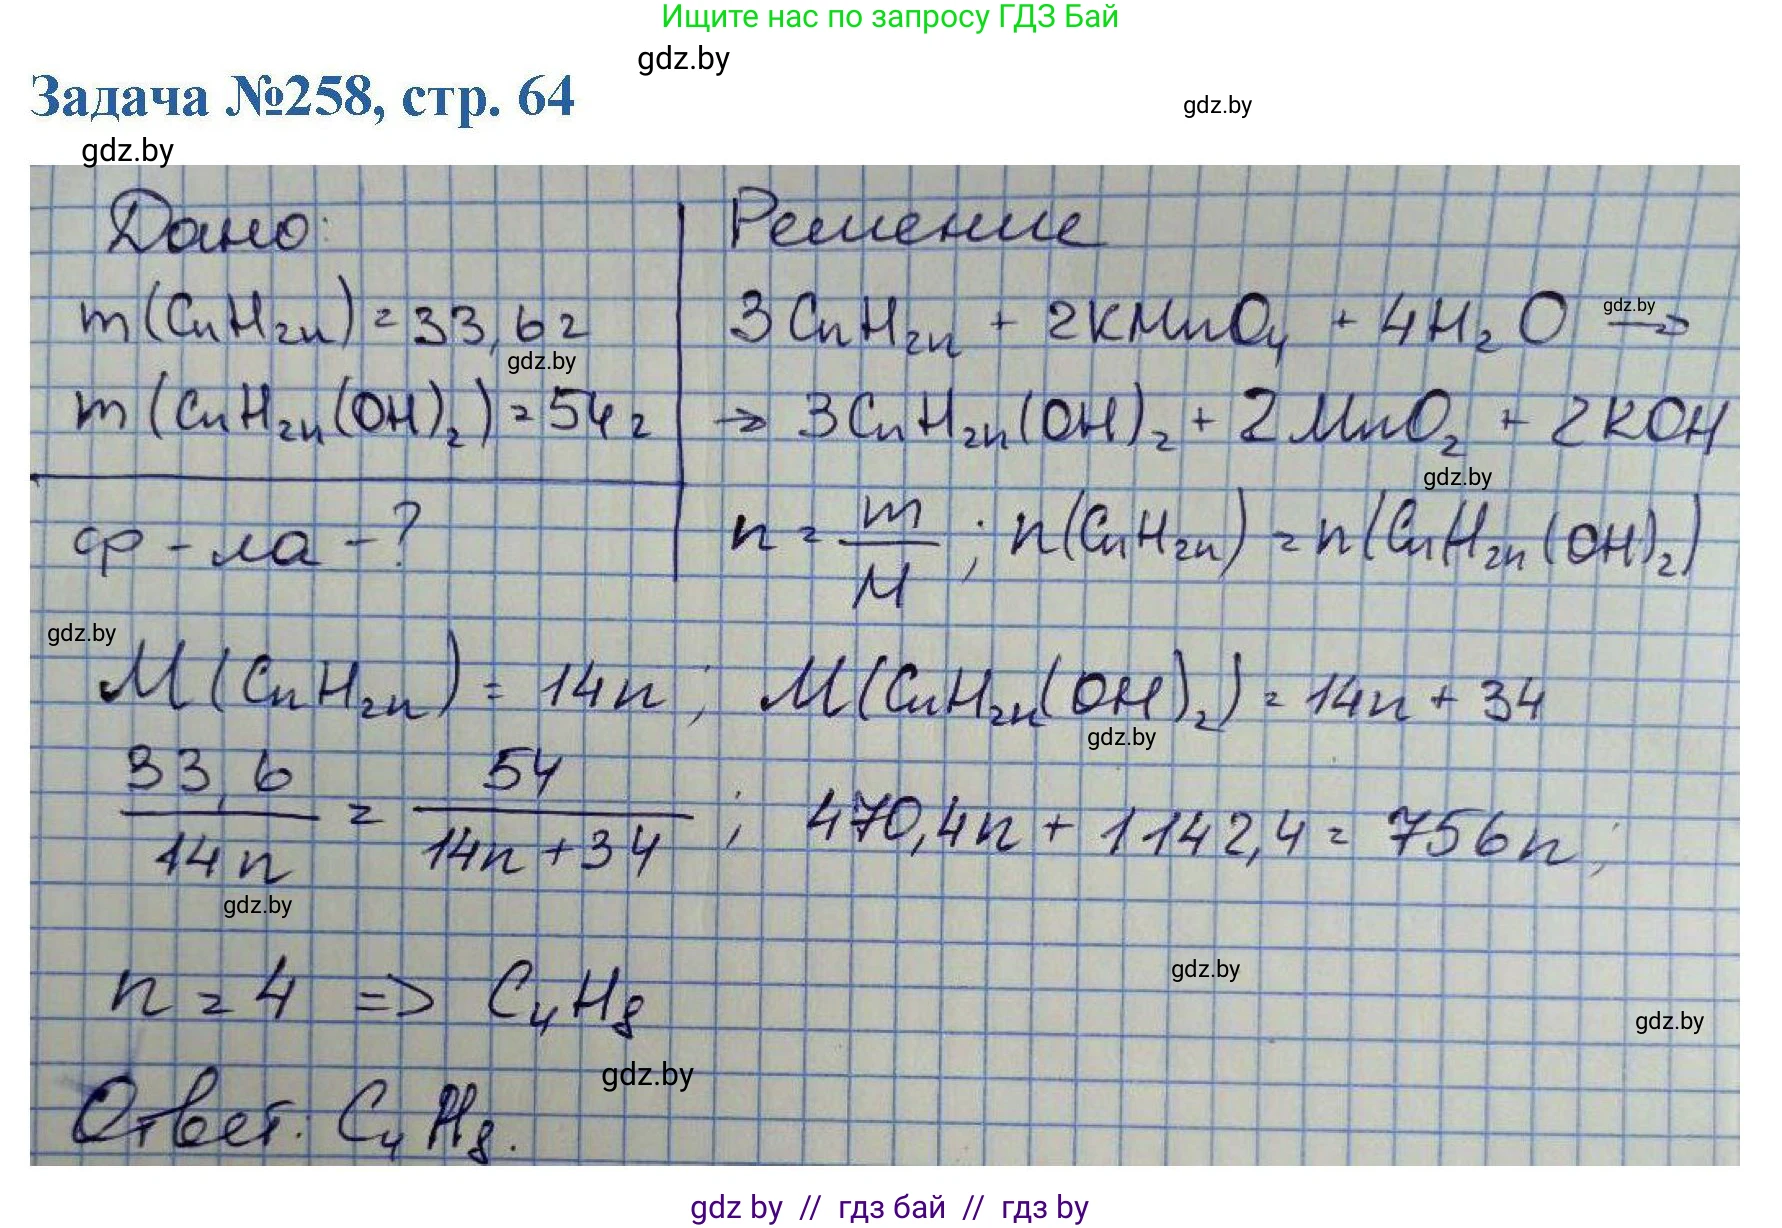 Ищите нас по запросу ГДЗ Бай
gdz.by
Задача №258, стр. 64
gdz.by
gdz.by
Дано: Решение
m(CnH2n) = 33,6 г 3CnH2n + 2KMnO4 + 4H2O →
gdz.by
gdz.by
m(CnH2n(OH)2) = 54 г → 3CnH2n(OH)2 + 2MnO2 + 2KOH
gdz.by
ф-ла - ? n = m/M ; n(CnH2n) = n(CnH2n(OH)2)
gdz.by
M(CnH2n) = 14n ; M(CnH2n(OH)2) = 14n + 34
gdz.by
33,6/14n = 54/14n + 34 ; 470,4n + 1142,4 = 756n ;
gdz.by
gdz.by
n = 4 => C4H8
gdz.by
gdz.by
Ответ: C4H8.
gdz by // гдз бай // гдз by